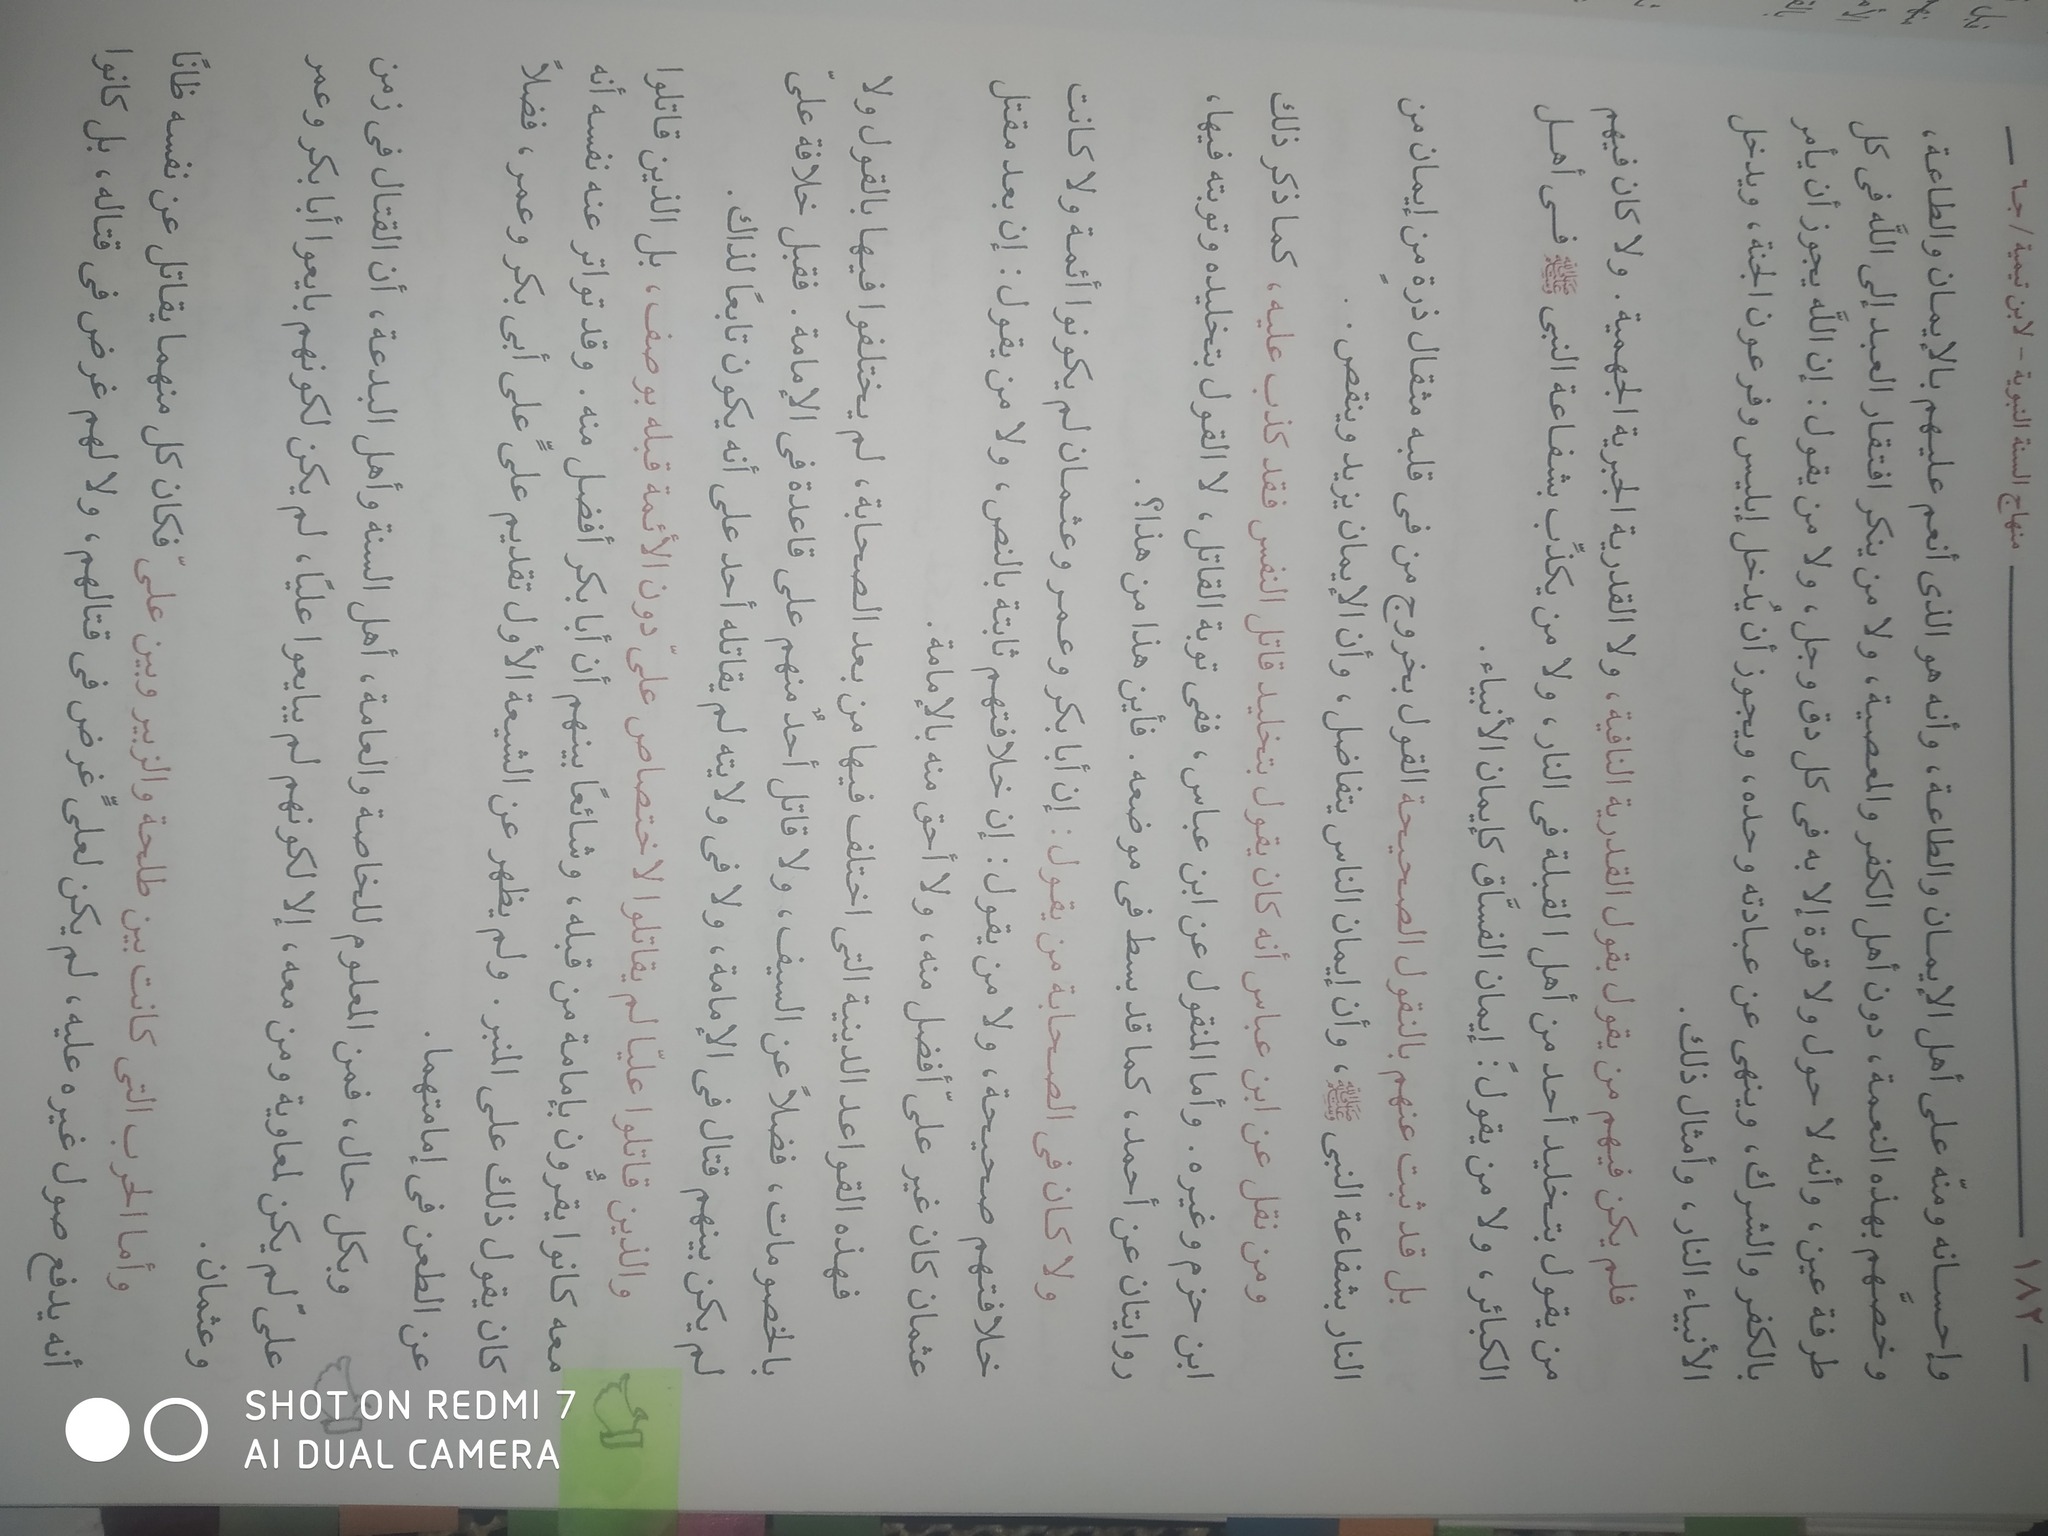 ١٨٢ منهاج السنة النبوية - لابن تيمية / جـ٦
وإحسانه ومنّه على أهل الإيمان والطاعة، وأنه هو الذى أنعم عليهم بالإيمان والطاعة،
وخصَّهم بهذه النعمة، دون أهل الكفر والمعصية، ولا من ينكر افتقار العبد إلى اللَّه فى كل
طرفة عين، وأنه لا حول ولا قوة إلا به فى كل دق وجل، ولا من يقول: إن اللَّه يجوز أن يأمر
بالكفر والشرك، وينهى عن عبادته وحده، ويجوز أن يُدخل إبليس وفرعون الجنة، ويدخل
الأنبياء النار، وأمثال ذلك.
فلم يكن فيهم من يقول بقول القدرية النافية، ولا القدرية الجبرية الجهمية. ولا كان فيهم
من يقول بتخليد أحد من أهل القبلة فى النار، ولا من يكذِّب بشفاعة النبى ﷺ فى أهل
الكبائر، ولا من يقول: إيمان الفسَّاق كإيمان الأنبياء.
بل قد ثبت عنهم بالنقول الصحيحة القول بخروج من فى قلبه مثقال ذرةٍ من إيمان من
النار بشفاعة النبى ﷺ، وأن إيمان الناس يتفاضل، وأن الإيمان يزيد وينقص.
ومن نقل عن ابن عباس أنه كان يقول بتخليد قاتل النفس فقد كذب عليه، كما ذكر ذلك
ابن حزم وغيره. وأما المنقول عن ابن عباس، ففى توبة القاتل، لا القول بتخليده وتوبته فيها،
روايتان عن أحمد، كما قد بسط فى موضعه. فأين هذا من هذا؟.
ولا كان فى الصحابة من يقول: إن أبا بكر وعمر وعثمان لم يكونوا أئمة ولا كانت
خلافتهم صحيحة، ولا من يقول: إن خلافتهم ثابتة بالنص، ولا من يقول: إن بعد مقتل
عثمان كان غير علىّ أفضل منه، ولا أحق منه بالإمامة.
فهذه القواعد الدينية التى اختلف فيها من بعد الصحابة، لم يختلفوا فيها بالقول ولا
بالخصومات، فضلاً عن السيف، ولا قاتل أحدٌ منهم على قاعدة فى الإمامة. فقبل خلافة علىّ
لم يكن بينهم قتال فى الإمامة، ولا فى ولايته لم يقاتله أحد على أنه يكون تابعًا لذاك.
والذين قاتلوا عليّا لم يقاتلوا لاختصاص علىّ دون الأئمة قبله بوصف، بل الذين قاتلوا
معه كانوا يقرُّون بإمامة من قبله، وشائعًا بينهم أن أبا بكر أفضل منه. وقد تواتر عنه نفسه أنه
كان يقول ذلك على المنبر. ولم يظهر عن الشيعة الأول تقديم علىٍّ على أبى بكر وعمر، فضلاً
عن الطعن فى إمامتهما.
وبكل حال، فمن المعلوم للخاصة والعامة، أهل السنة وأهل البدعة، أن القتال فى زمن
علىّ لم يكن لمعاوية ومن معه، إلا لكونهم لم يبايعوا عليّا، لم يكن لكونهم بايعوا أبا بكر وعمر
وعثمان.
وأما الحرب التى كانت بين طلحة والزبير وبين علىّ فكان كل منهما يقاتل عن نفسه ظانّا
أنه يدفع صول غيره عليه، لم يكن لعلىٍّ غرض فى قتالهم، ولا لهم غرض فى قتاله، بل كانوا
SHOT ON REDMI 7
AI DUAL CAMERA